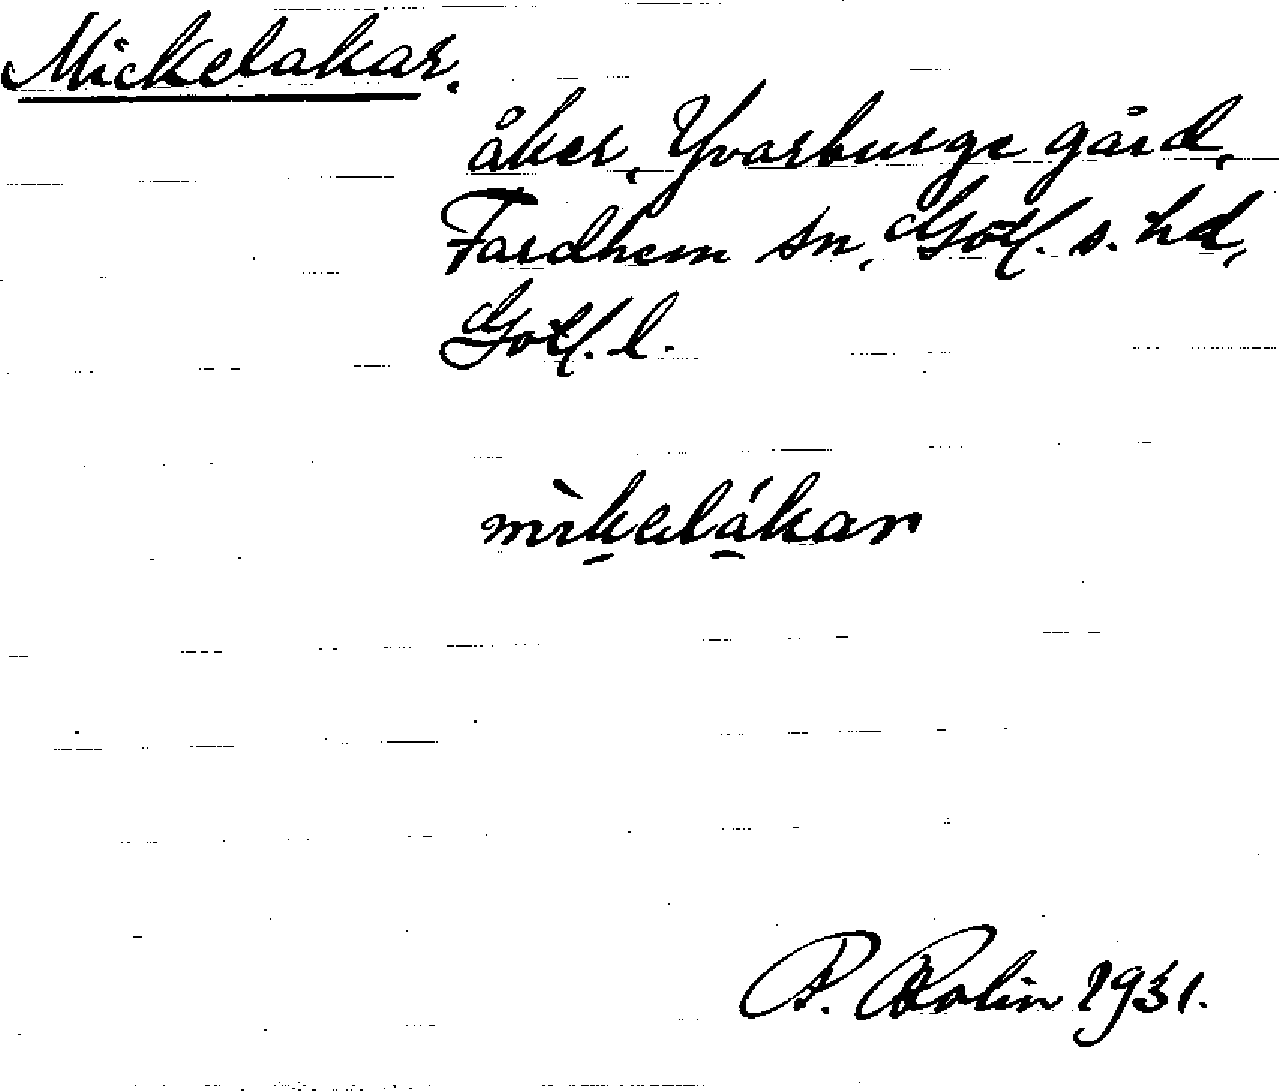 Mickelakar.
åker, Yvarburge gård,
Fardhem sn, Gotl. s. hd,
Gotl. l.
mìkelákar
P. Rolin 1931.